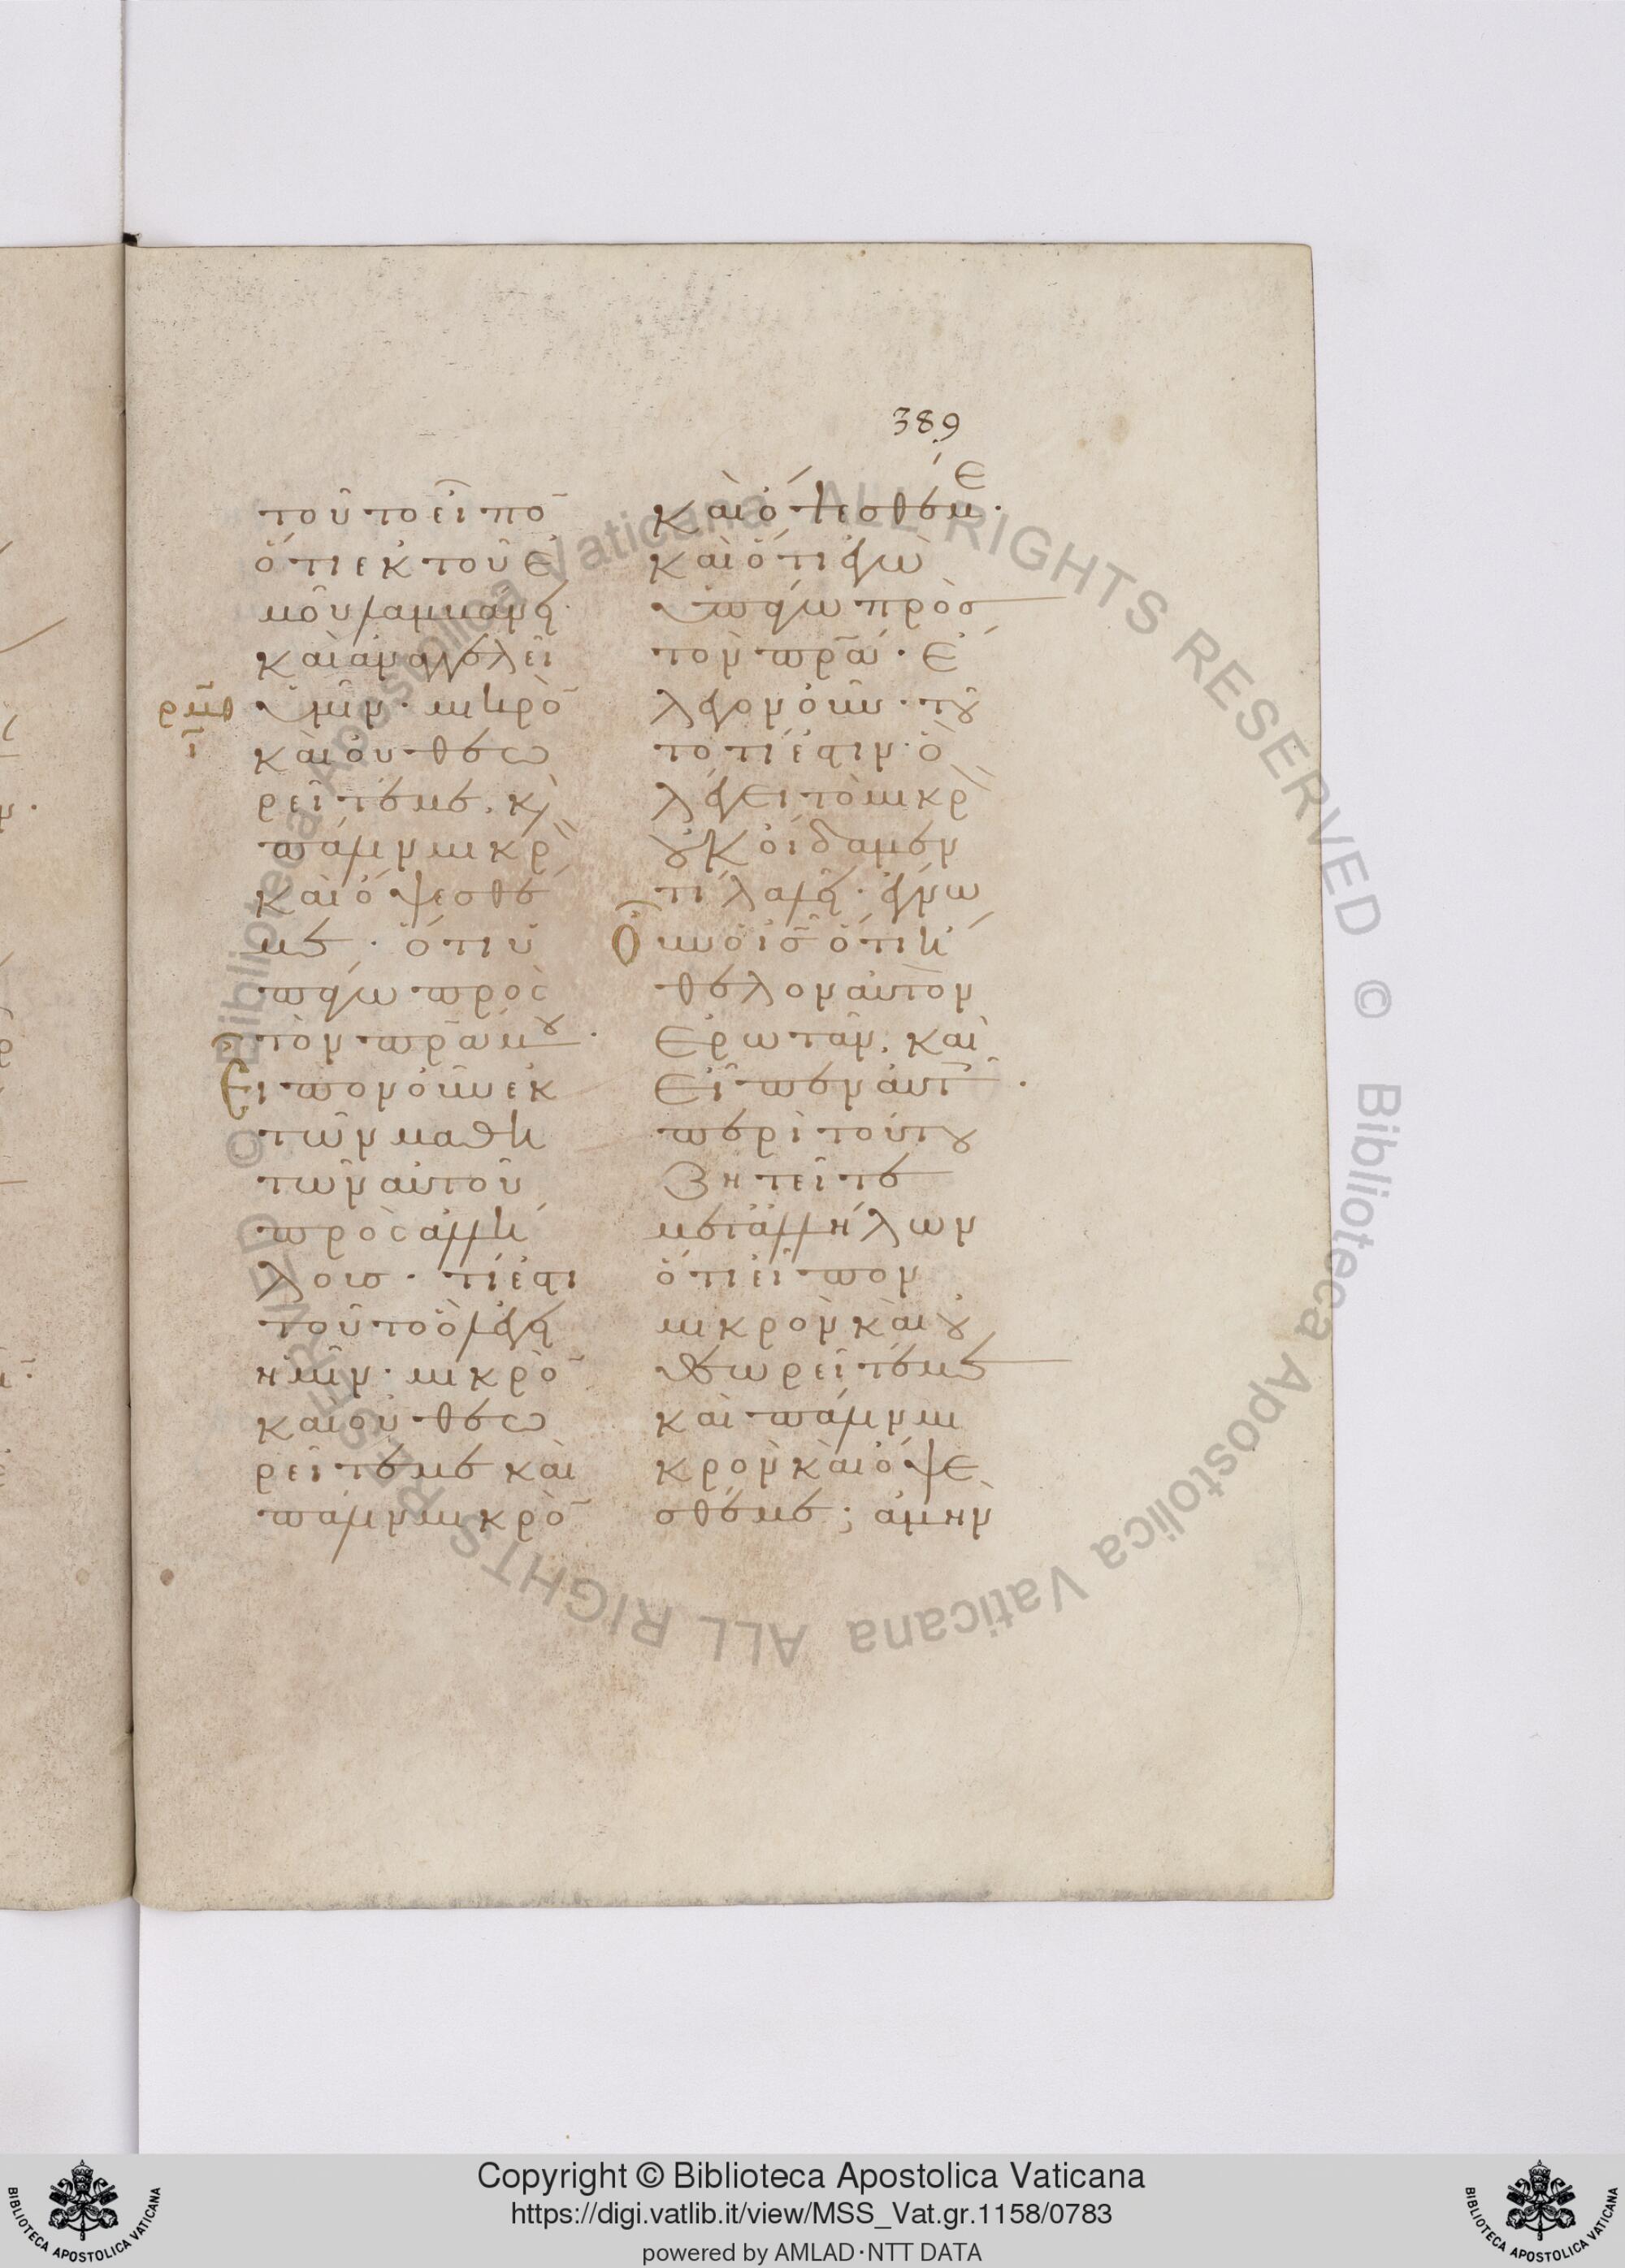 389
τοῦτο εἶπο̄
ὅτι ἐκ τοῦ ἐ
μοῦ λαμβάνει·
καὶ ἀναγγελεῖ
ὑμῖν· μικρὸ̄
καὶ οὐ θεω
ρεῖτέ με. κ̀
πάλιν μικρ``
καὶ ὄψεσθέ
με· ὅτι ὑ
πάγω πρὸς
τὸν πρ̄α μου·
Εἶπον οὖν ἐκ
τῶν μαθη
τῶν αὐτοῦ
πρὸς ἀλλή
λους· τί ἐστι
τοῦτο ὃ λέγει
ἡμῖν· μικρὸ̄
καὶ οὐ θεω
ρεῖτέ με καὶ
πάλιν μικρὸ̄
καὶ ὄψεσθέ με·
καὶ ὅτι ἐγὼ
ὑπάγω πρὸς
τὸν πρ̄α· ἔ
λεγον οὖν· τοῦ
το τί ἐστιν· ὃ
λέγει τὸ μικρ``
οὐκ οἴδαμεν
τί λαλεῖ· ἔγνω
Ὁ οὖν ὁ ις̄ ὅτι ἤ
θελον αὐτὸν
ἐρωτᾶν. καὶ
εἶπεν αὐτοῖς·
περὶ τούτου
ζητεῖτε
μετ' ἀλλήλων
ὅτι εἶπον
μικρὸν καὶ οὐ
θεωρεῖτέ με
καὶ πάλιν μι
κρὸν καὶ ὄψε
σθέ με; ἀμὴν
Copyright © Biblioteca Apostolica Vaticana
https://digi.vatlib.it/view/MSS_Vat.gr.1158/0783
powered by AMLAD·NTT DATA
BIBLIOTECA APOSTOLICA VATICANA
BIBLIOTECA APOSTOLICA VATICANA
© Biblioteca Apostolica Vaticana ALL RIGHTS RESERVED © Biblioteca Apostolica Vaticana ALL RIGHTS RESERVED